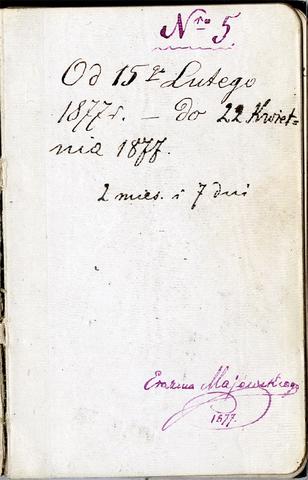 Nro 5
Od 15go Lutego
1877 r. — do 22 Kwiet=
nia 1877.
2 mies. i 7 dni
Erazma Majewskiego
1877.